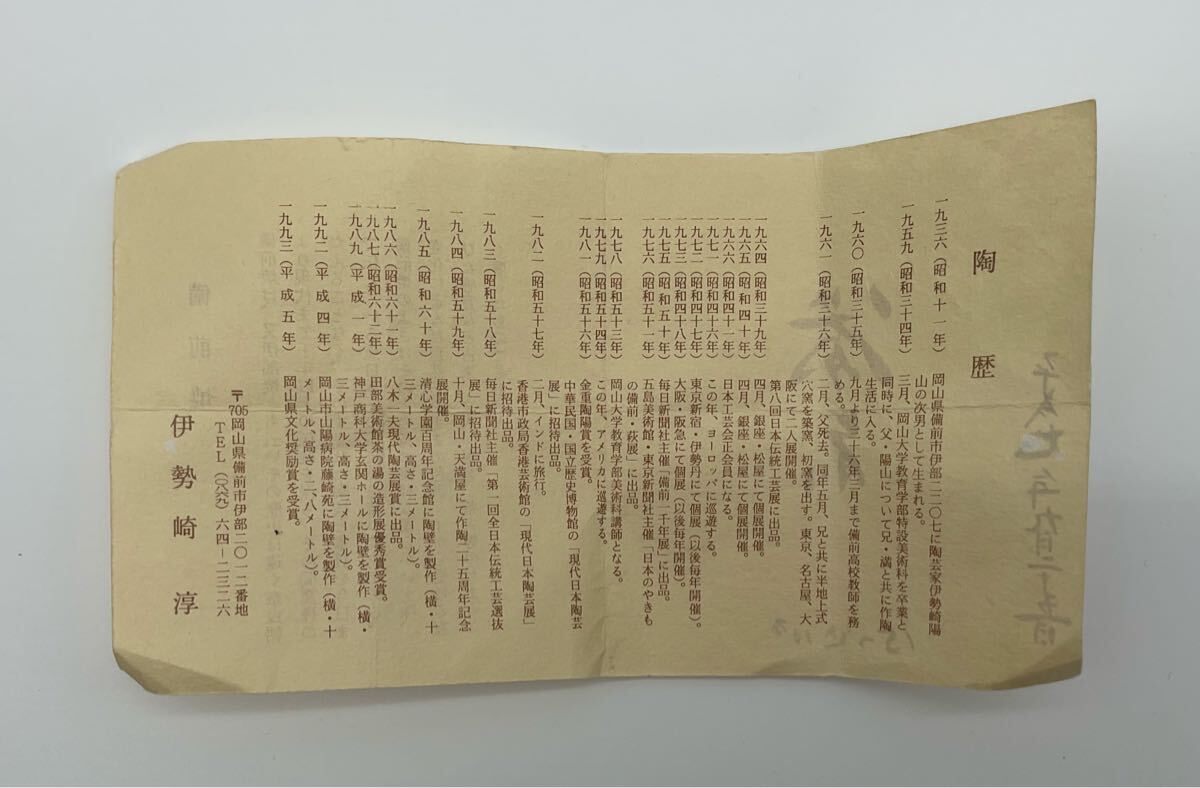 陶歴
一九三六（昭和十一年）
岡山県備前市伊部二二〇七に陶芸家伊勢崎陽
山の次男として生まれる。
一九五九（昭和三十四年）
三月、岡山大学教育学部特設美術科を卒業と
同時に、父・陽山について兄・満と共に作陶
生活に入る。
一九六〇（昭和三十五年）
九月より三十六年三月まで備前高校教師を務
める。
一九六一（昭和三十六年）
二月、父死去。同年五月、兄と共に半地上式
穴窯を築窯、初窯を出す。東京、名古屋、大
阪にて二人展開催。
一九六四（昭和三十九年）
第八回日本伝統工芸展に出品。
一九六五（昭和四十年）
四月、銀座・松屋にて個展開催。
一九六六（昭和四十一年）
四月、銀座・松屋にて個展開催。
日本工芸会正会員になる。
一九七一（昭和四十六年）
この年、ヨーロッパに巡遊する。
一九七二（昭和四十七年）
東京新宿・伊勢丹にて個展（以後毎年開催）。
一九七三（昭和四十八年）
大阪・阪急にて個展（以後毎年開催）。
一九七五（昭和五十年）
毎日新聞社主催「備前一千年展」に出品。
一九七六（昭和五十一年）
五島美術館・東京新聞社主催「日本のやきも
の備前・萩展」に出品。
一九七八（昭和五十三年）
岡山大学教育学部美術科講師となる。
一九七九（昭和五十四年）
この年、アメリカに巡遊する。
一九八一（昭和五十六年）
金重陶陽賞を受賞。
中華民国・国立歴史博物館の「現代日本陶芸
展」に招待出品。
一九八二（昭和五十七年）
二月、インドに旅行。
香港市政局香港芸術館の「現代日本陶芸展」
に招待出品。
一九八三（昭和五十八年）
毎日新聞社主催「第一回全日本伝統工芸選抜
展」に招待出品。
一九八四（昭和五十九年）
十月、岡山・天満屋にて作陶二十五周年記念
展開催。
一九八五（昭和六十年）
清心学園百周年記念館に陶壁を製作（横・十
三メートル、高さ・三メートル）。
一九八六（昭和六十一年）
八木一夫現代陶芸展に出品。
一九八七（昭和六十二年）
田部美術館茶の湯の造形展優秀賞受賞。
一九八九（平成一年）
神戸商科大学玄関ホールに陶壁を製作（横・
三メートル、高さ・三メートル）。
一九九二（平成四年）
岡山市山陽病院藤崎苑に陶壁を製作（横・十
メートル、高さ・二、八メートル）。
一九九三（平成五年）
岡山県文化奨励賞を受賞。
〒705岡山県備前市伊部二〇一二番地
TEL（〇八六九）六四-二三二六
伊勢崎淳